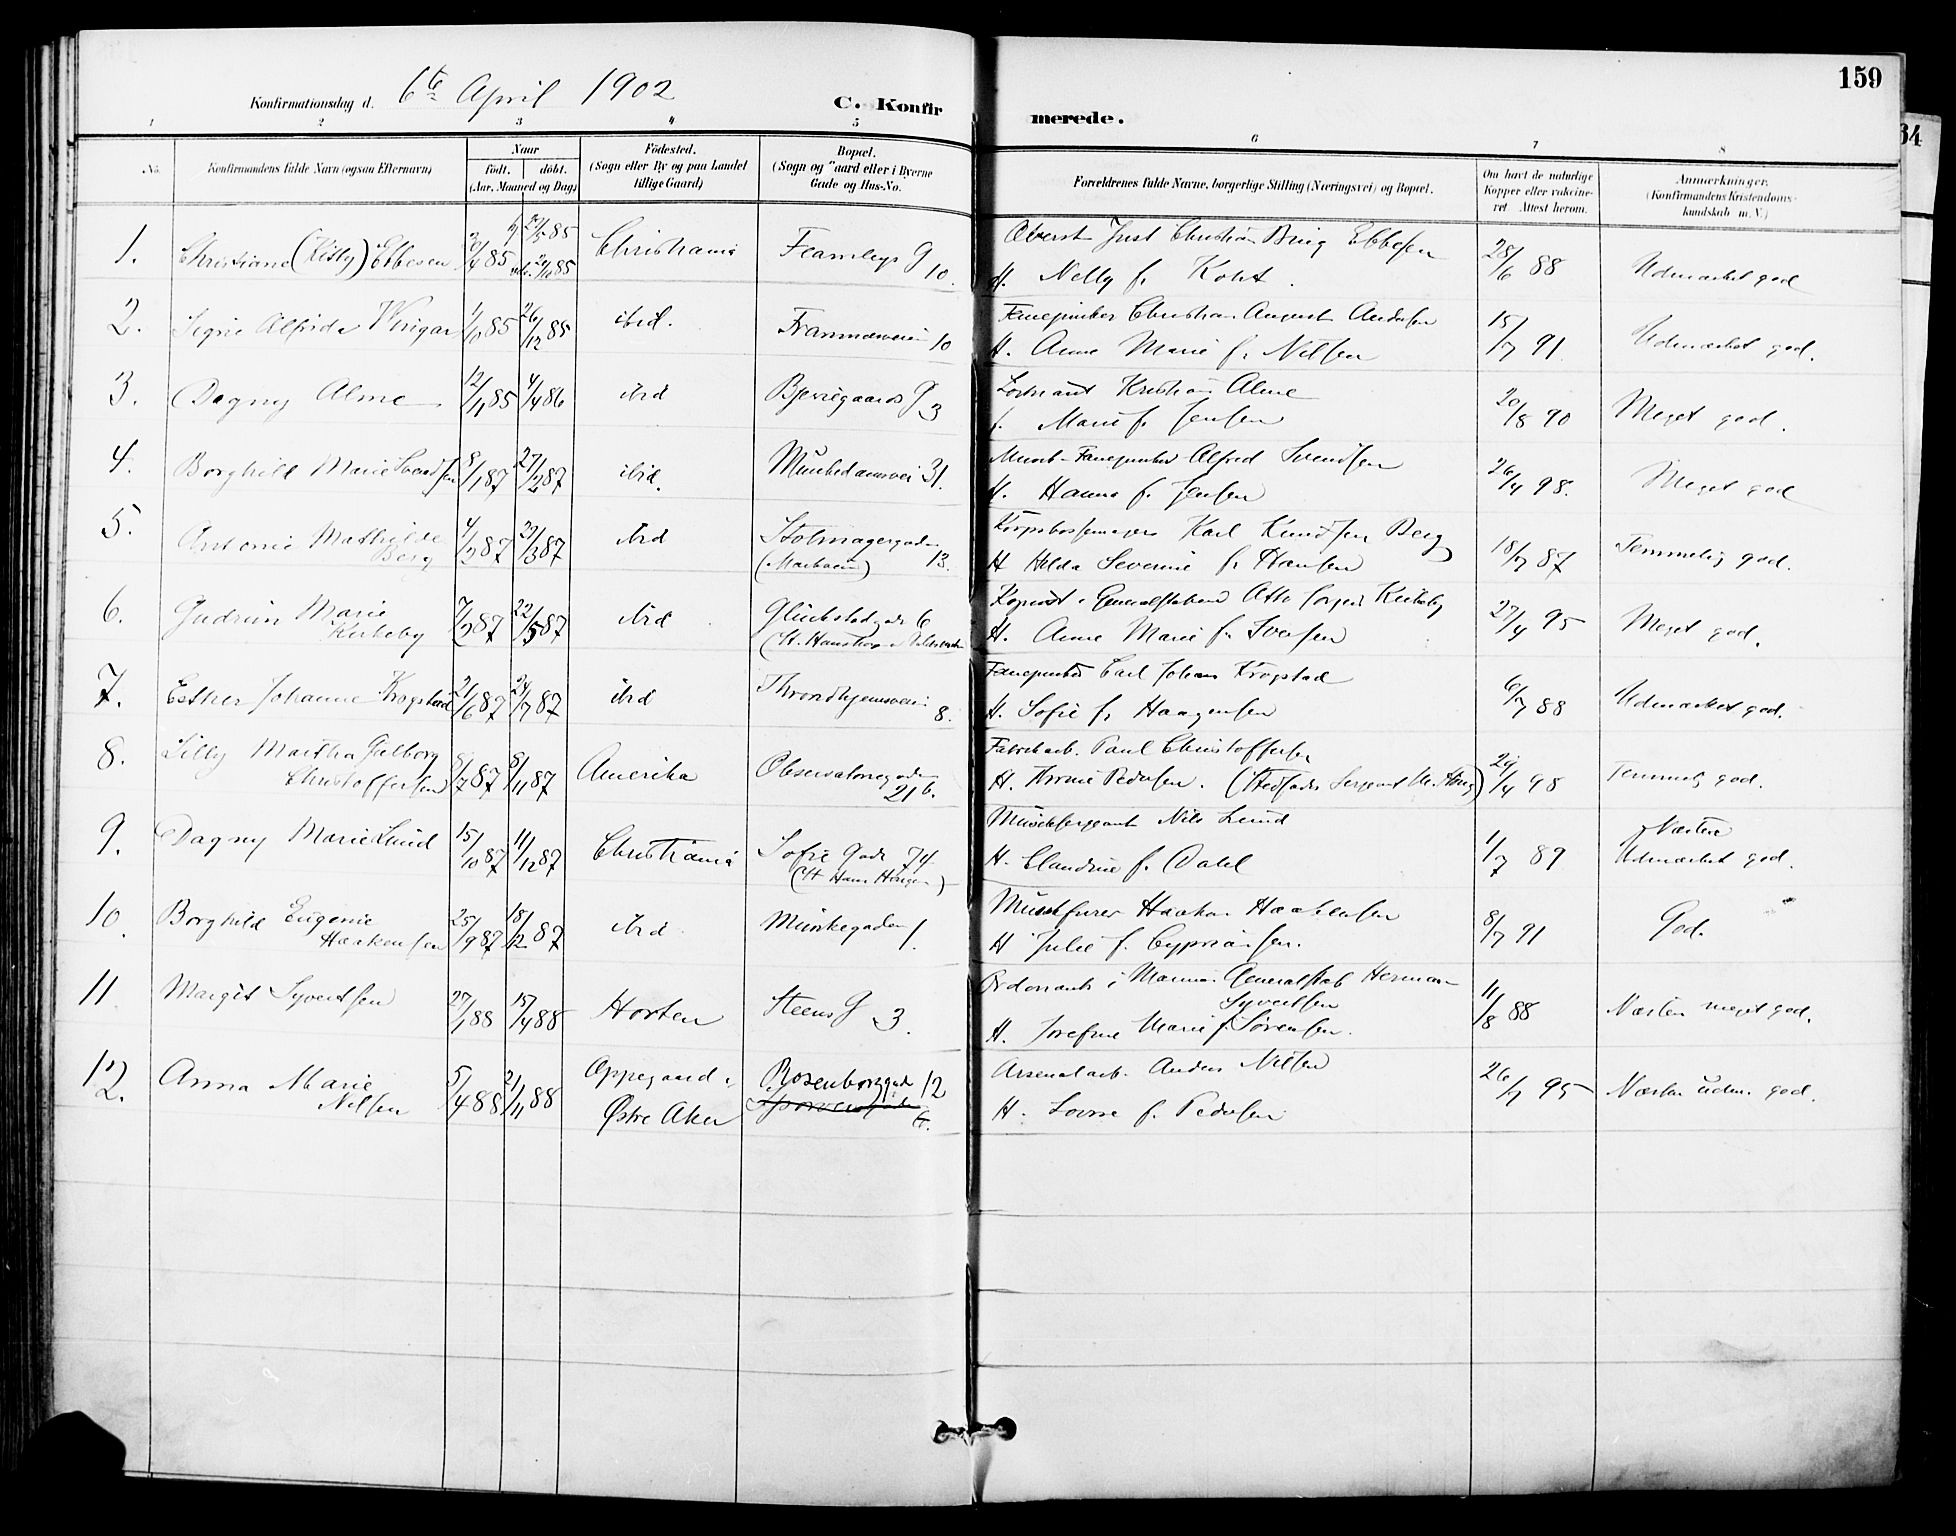 159
Konfirmationsdag d. 6te April 1902
C. Konfirmerede.
1 2 3 4 5 6 7 8
No. Konfirmandens fulde Navn (ogsaa Efternavn) Naar født. døbt. (Aar, Maaned og Dag) Fødested. (Sogn eller By og paa Landet tillige Gaard) Bopæl. (Sogn og Gaard eller i Byerne Gade og Hus-No. Forældrenes fulde Navne, borgerlige Stilling (Næringsvei) og Bopæl. Om havt de naturlige Kopper eller vakcineret. Attest herom. Anmærkninger. (Konfirmandens Kristendomskundskab m. V.)
1. Christiane (Kitty) Ebbesen 20/4 85 Christiania Fearnleys G 10. Oberst Just Christian Ebbesen
H. Nelly f. Koht. 28/6 88 Udmærket god
2. Signe Alfrida 1/10 85 26/12 85 ibid. Framnæsveien 10 Fanejunker Christian August Andersen
H. Anne Marie f. Nilsen 15/7 91. Udmærket god.
3. Dagny Alme 12/11 85 4/4 86 ibid Bjerregaards G 3 Kristian Alme
f. Marie f. Jensen 20/8 90 Meget god.
4. Borghild Marie Svendsen 8/1 87 27/2 87 ibid. Munkedamsvei 31. Fanejunker Alfred Svendsen
H. Hanna f. Jensen 26/4 98. Meget god
5. Antonie Mathilde Berg 4/2 87 ibid Stolmagergaden 13. Korpsbøssemager Karl Knudsen Berg
H Hilda Severine f. Hansen 18/7 87 Temmelig god.
6. Gudrun Marie Kirkeby 7/2 87 22/5 87 ibid Glückstadgade 6 Kopiist i Generalstaben Kirkeby
H. Anne Marie f. Iversen 27/4 95 Meget god.
7. Esther Johanne Krogstad 21/6 87 24/7 87 ibid Throndhjemsveien 8. Fanejunker Carl Johan Krogstad
H. Sofie f. Haagensen 6/7 88 Udmærket god.
8. Lilly Martha Christoffersen 8/11 87 Amerika Observatoriegaden 21 b. Fabrikarb. Paul Christoffersen
H. Pedersen. (Stedfader Sergeant 29/4 98 Temmelig god.
9. Dagny Marie Lund 15/10 87 11/12 87 Christiania Sofie Gade 74 Musiksergeant Nils Lund
H. Claudine f. Dahl 1/7 89 Næsten Udmærket god.
10. Borghild Eugenie Haakensen 25/9 87 18/12 87 ibid Munkegaden 1. Haakon Haakensen
H Julie f. Cypriansen. 8/7 91 God.
11. Margit Syvertsen 27/1 88 15/4 88 Horten Steens G 3. i Marine Generalstab Herman Syvertsen
H. Josefine Marie f. Sörensen. 11/8 88 Næsten meget god.
12. Anna Marie Nilsen 5/4 88 21/11 88 Oppegaard i Østre Aker Rosenborggade 12 Arsenalarb. Anders Nilsen
H. Lovise f. Pedersen 26/7 95 Næsten udm. god.